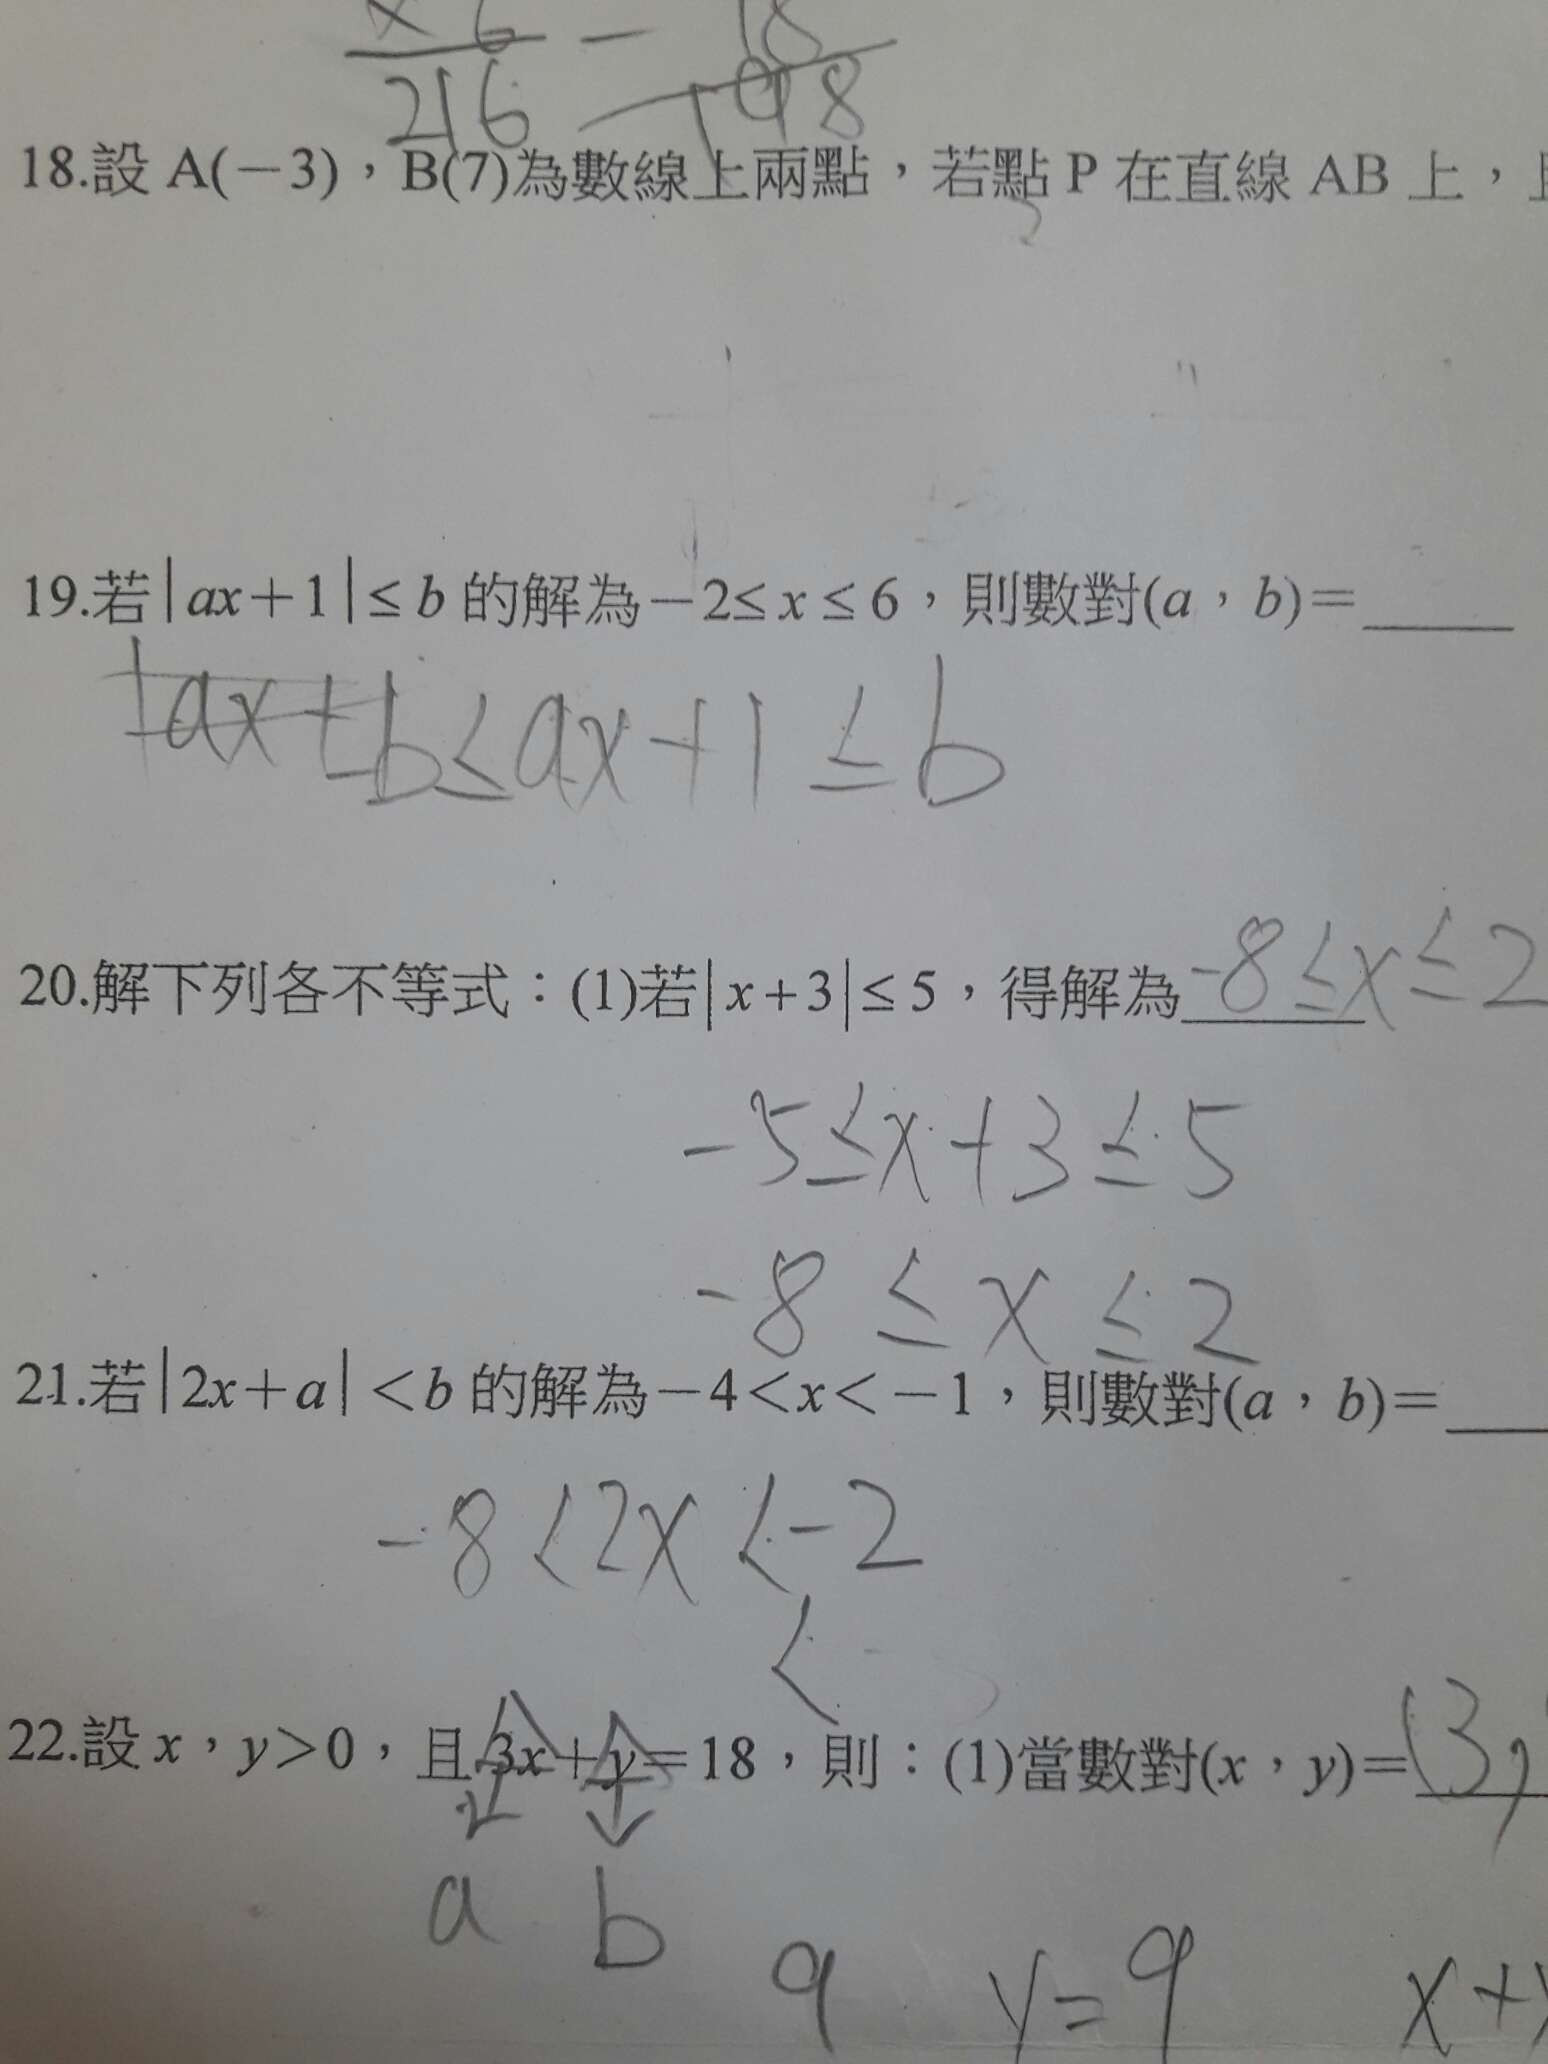 × 6 — 18
216 — 198
18.設 A(－3)，B(7)為數線上兩點，若點 P 在直線 AB 上，
19.若|ax＋1|≤ b 的解為－2≤ x ≤ 6，則數對(a，b)＝____
-b ≤ ax+1 ≤ b
20.解下列各不等式：(1)若|x＋3|≤ 5，得解為 -8 ≤ x ≤ 2
-5 ≤ x+3 ≤ 5
-8 ≤ x ≤ 2
21.若|2x＋a|＜b 的解為－4＜x＜－1，則數對(a，b)＝____
-8 < 2x < -2
<
22.設 x，y＞0，且 3x＋y＝18，則：(1)當數對(x，y)＝(3,
a b
9 y=9 x+y